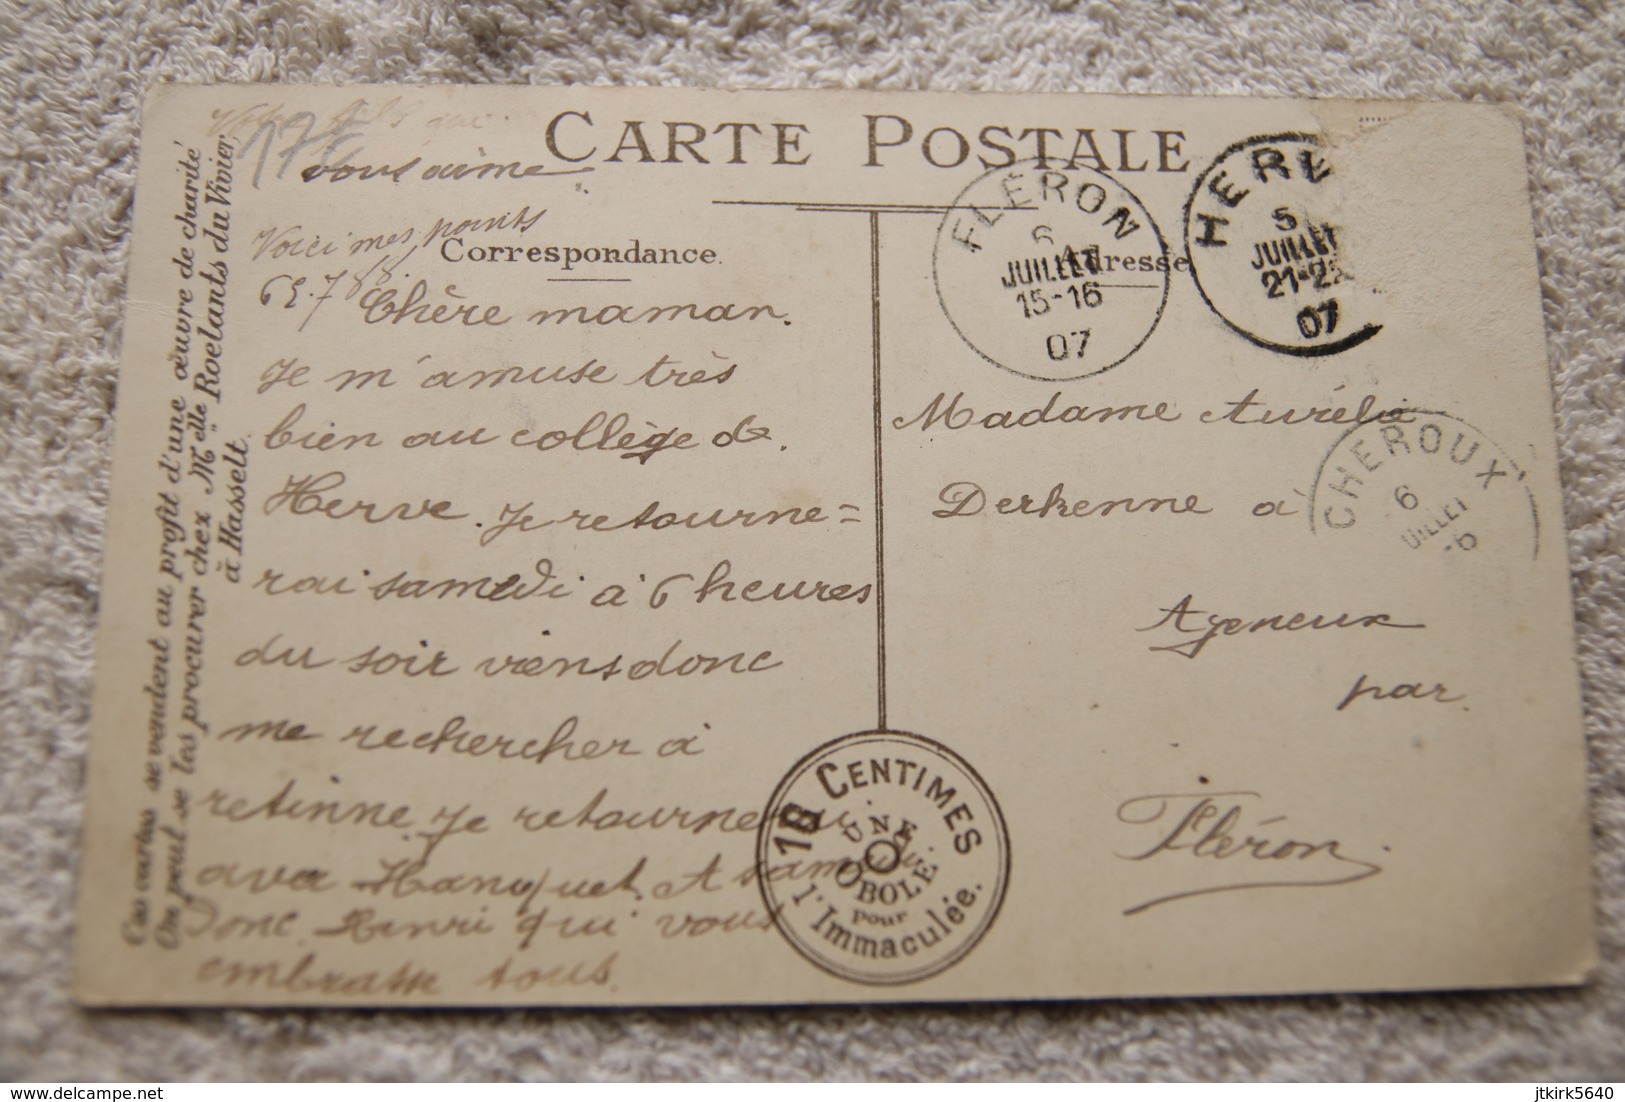 CARTE POSTALE
Correspondance
Adresse
Ces cartes se vendent au profit d'une œuvre de charité
On peut se les procurer chez Melle Roelants du Vivier
à Hasselt
Votre fils qui
vous aime
Voici mes points
Chère maman.
Je m'amuse très
bien au collège de
Herve. Je retourne=
rai samedi à 6 heures
du soir viens donc
me rechercher à
retinne je retourne
avec Hanquet. A
donc Henri qui vous
embrasse tous.
FLÉRON
6
JUILLET
15-16
07
HER
5
JUILLET
21-22
07
Madame Aurélie
Derkenne a
Ayeneux
par
Fléron
CHEROUX
6
UILLET
18 CENTIMES
UNE
OBOLE
pour
l'Immaculée.
jtkirk5640